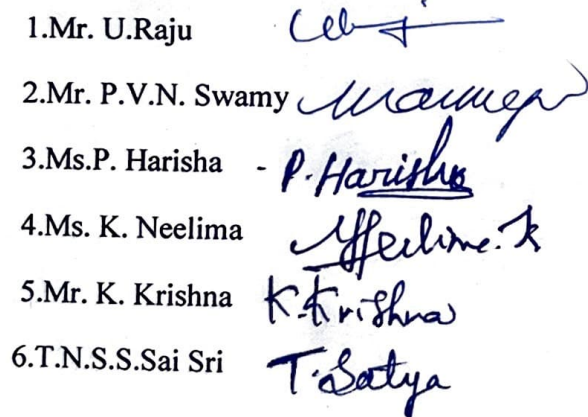 1.Mr. U.Raju
2.Mr. P.V.N. Swamy
3.Ms.P. Harisha - P.Harisha
4.Ms. K. Neelima Neelima.K
5.Mr. K. Krishna K.Krishna
6.T.N.S.S.Sai Sri T.Satya